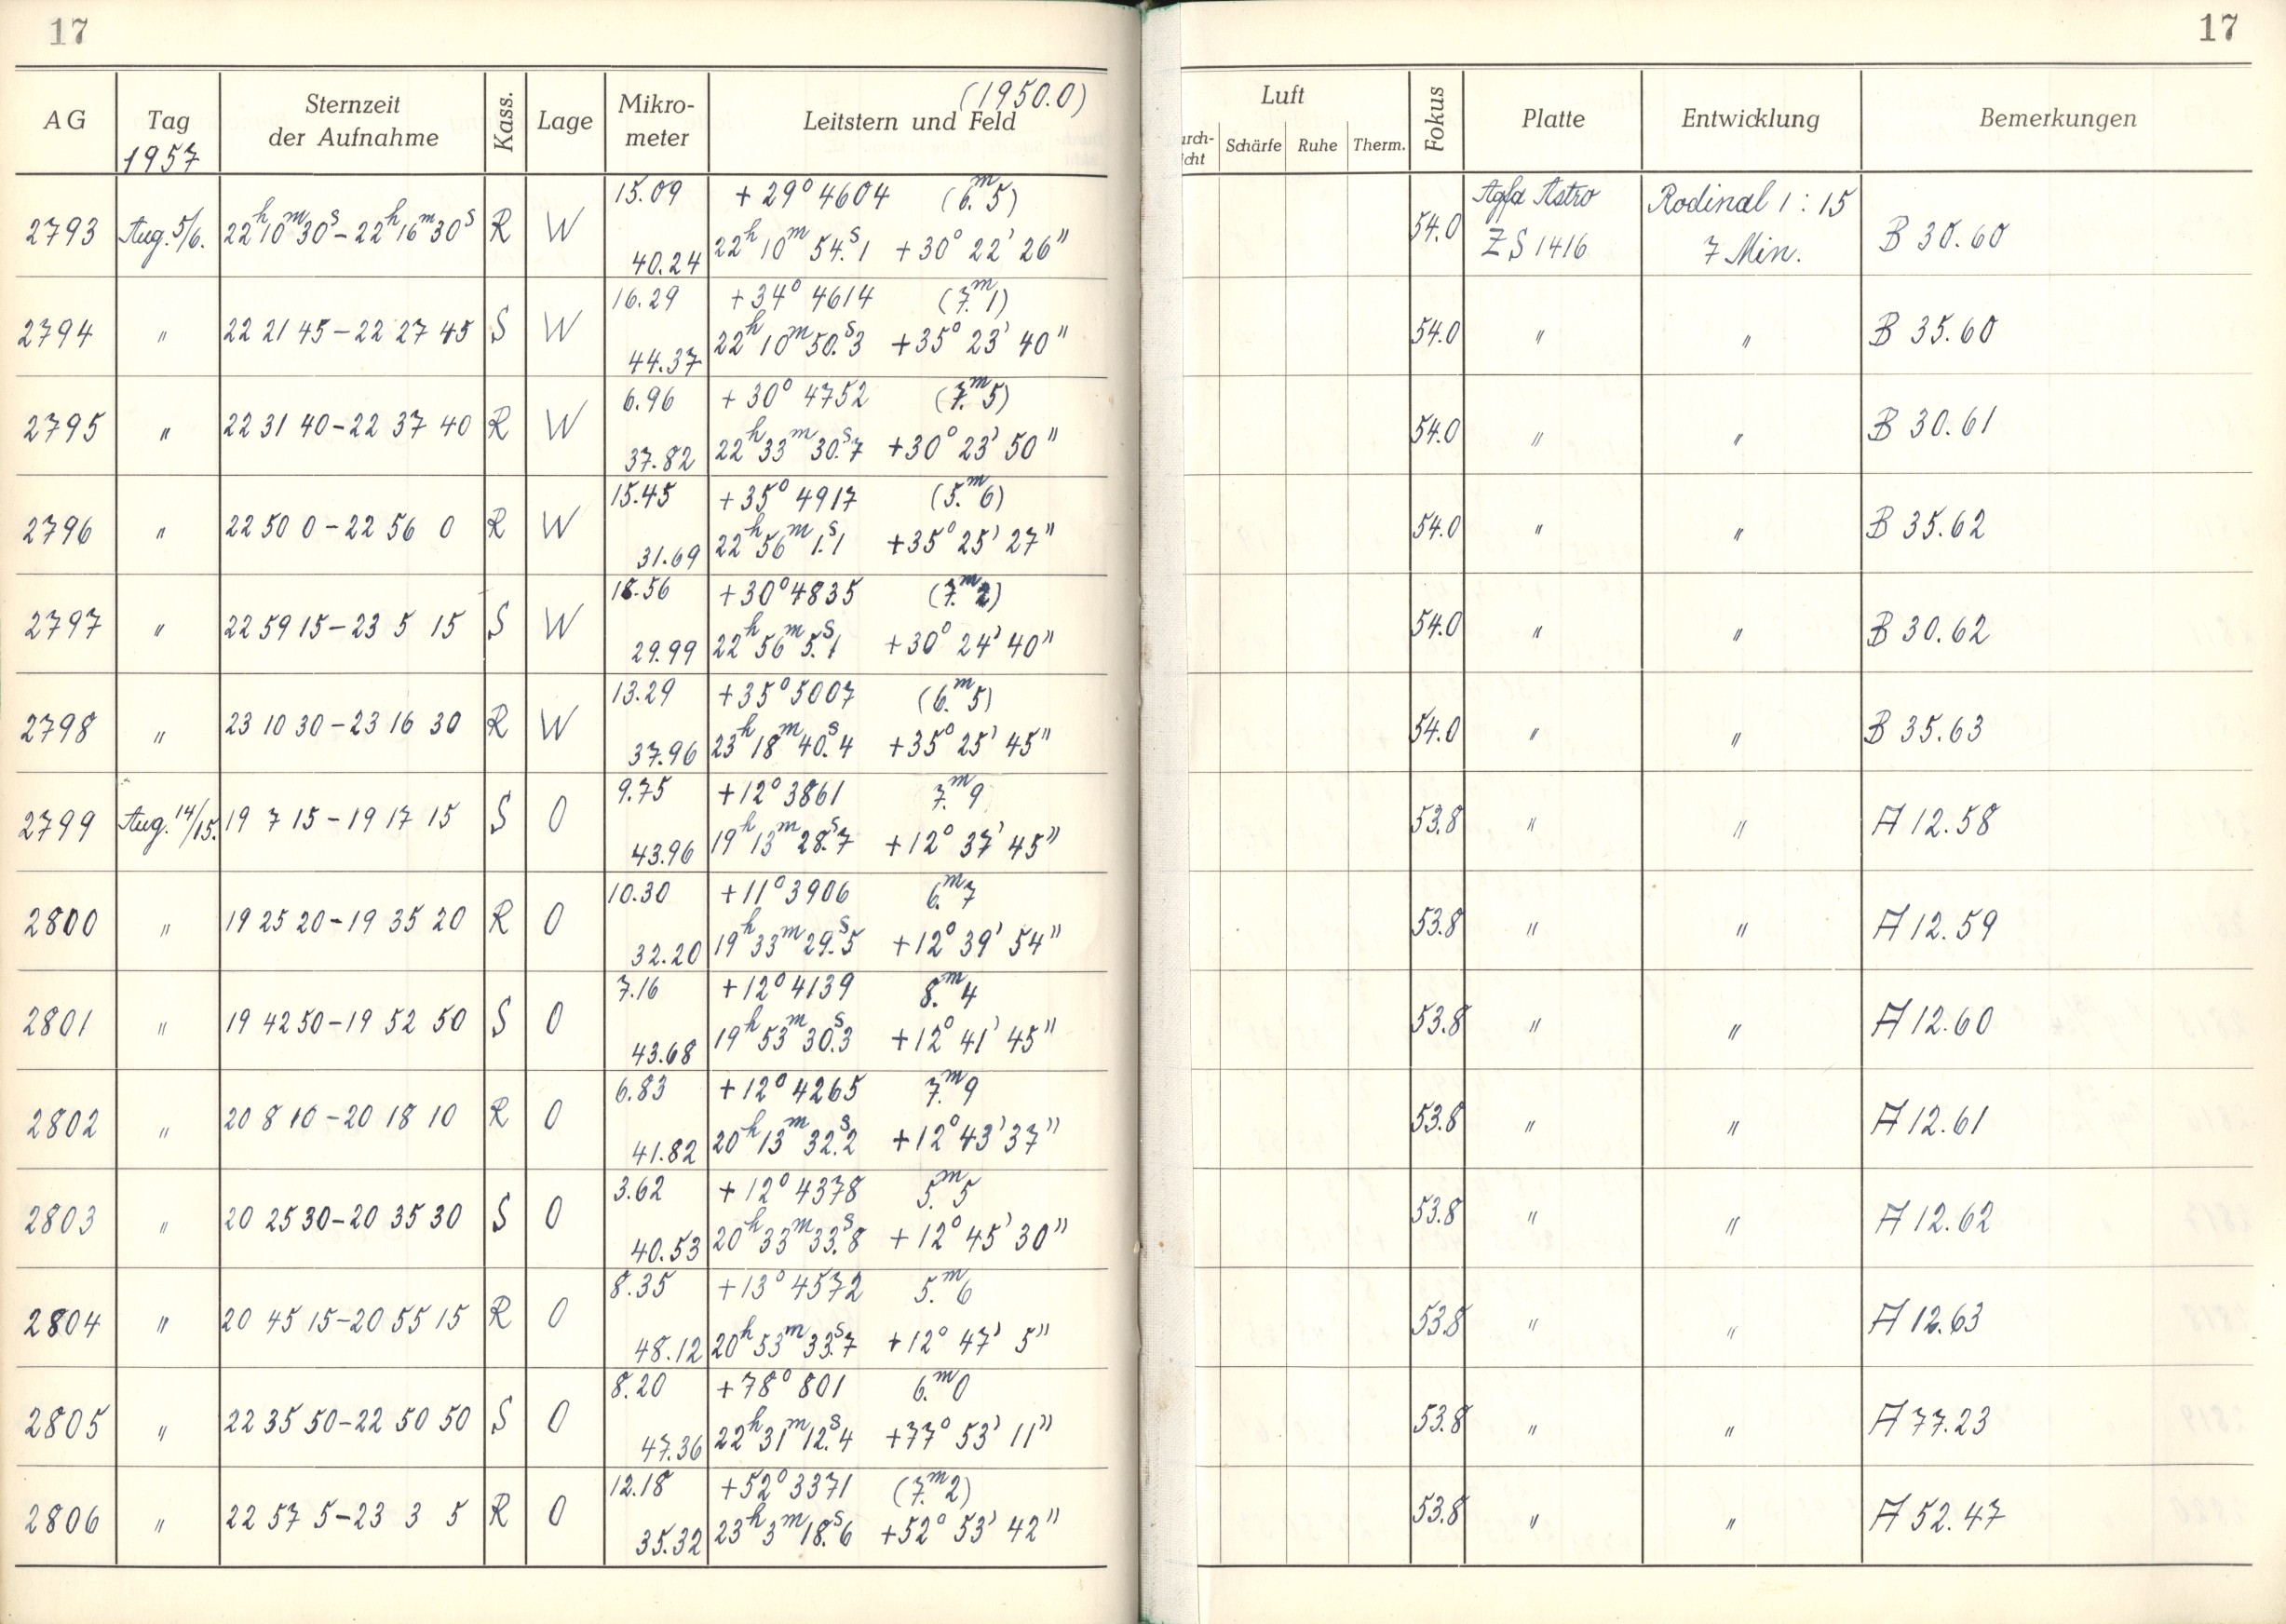 17
17
(1950.0)
AG Tag Sternzeit der Aufnahme Kass. Lage Mikro-meter Leitstern und Feld Luft Schärfe Ruhe Therm. Fokus Platte Entwicklung Bemerkungen
1957
15.09 + 29° 4604 (6.ᵐ5) Agfa Astro Rodinal 1 : 15
2793 Aug. 5/6. 22ʰ10ᵐ30ˢ – 22ʰ16ᵐ30ˢ R W 54.0 B 30.60
40.24 22ʰ 10ᵐ 54.ˢ1 + 30° 22' 26" ZS 1416 7 Min.
16.29 + 34° 4614 (7.ᵐ1)
2794 " 22 21 45 – 22 27 45 S W 54.0 " " B 35.60
44.37 22ʰ 10ᵐ 50.ˢ3 + 35° 23' 40"
6.96 + 30° 4752 (7.ᵐ5)
2795 " 22 31 40 – 22 37 40 R W 54.0 " " B 30.61
37.82 22ʰ 33ᵐ 30.ˢ7 + 30° 23' 50"
15.45 + 35° 4917 (5.ᵐ6)
2796 " 22 50 0 – 22 56 0 R W 54.0 " " B 35.62
31.69 22ʰ 56ᵐ 1.ˢ1 + 35° 25' 27"
18.56 + 30° 4835 (7.ᵐ2)
2797 " 22 59 15 – 23 5 15 S W 54.0 " " B 30.62
29.99 22ʰ 56ᵐ 5.ˢ1 + 30° 24' 40"
13.29 + 35° 5007 (6.ᵐ5)
2798 " 23 10 30 – 23 16 30 R W 54.0 " " B 35.63
37.96 23ʰ 18ᵐ 40.ˢ4 + 35° 25' 45"
9.75 + 12° 3861 7.ᵐ9
2799 Aug. 14/15. 19 7 15 – 19 17 15 S O 53.8 " " A 12.58
43.96 19ʰ 13ᵐ 28.ˢ7 + 12° 37' 45"
10.30 + 11° 3906 6.ᵐ7
2800 " 19 25 20 – 19 35 20 R O 53.8 " " A 12.59
32.20 19ʰ 33ᵐ 29.ˢ5 + 12° 39' 54"
7.16 + 12° 4139 8.ᵐ4
2801 " 19 42 50 – 19 52 50 S O 53.8 " " A 12.60
43.68 19ʰ 53ᵐ 30.ˢ3 + 12° 41' 45"
6.83 + 12° 4265 7.ᵐ9
2802 " 20 8 10 – 20 18 10 R O 53.8 " " A 12.61
41.82 20ʰ 13ᵐ 32.ˢ2 + 12° 43' 37"
3.62 + 12° 4378 5.ᵐ5
2803 " 20 25 30 – 20 35 30 S O 53.8 " " A 12.62
40.53 20ʰ 33ᵐ 33.ˢ8 + 12° 45' 30"
8.35 + 13° 4572 5.ᵐ6
2804 " 20 45 15 – 20 55 15 R O 53.8 " " A 12.63
48.12 20ʰ 53ᵐ 33.ˢ7 + 12° 47' 5"
8.20 + 78° 801 6.ᵐ0
2805 " 22 35 50 – 22 50 50 S O 53.8 " " A 77.23
47.36 22ʰ 31ᵐ 12.ˢ4 + 77° 53' 11"
12.18 + 52° 3371 (7.ᵐ2)
2806 " 22 57 5 – 23 3 5 R O 53.8 " " A 52.47
35.32 23ʰ 3ᵐ 18.ˢ6 + 52° 53' 42"